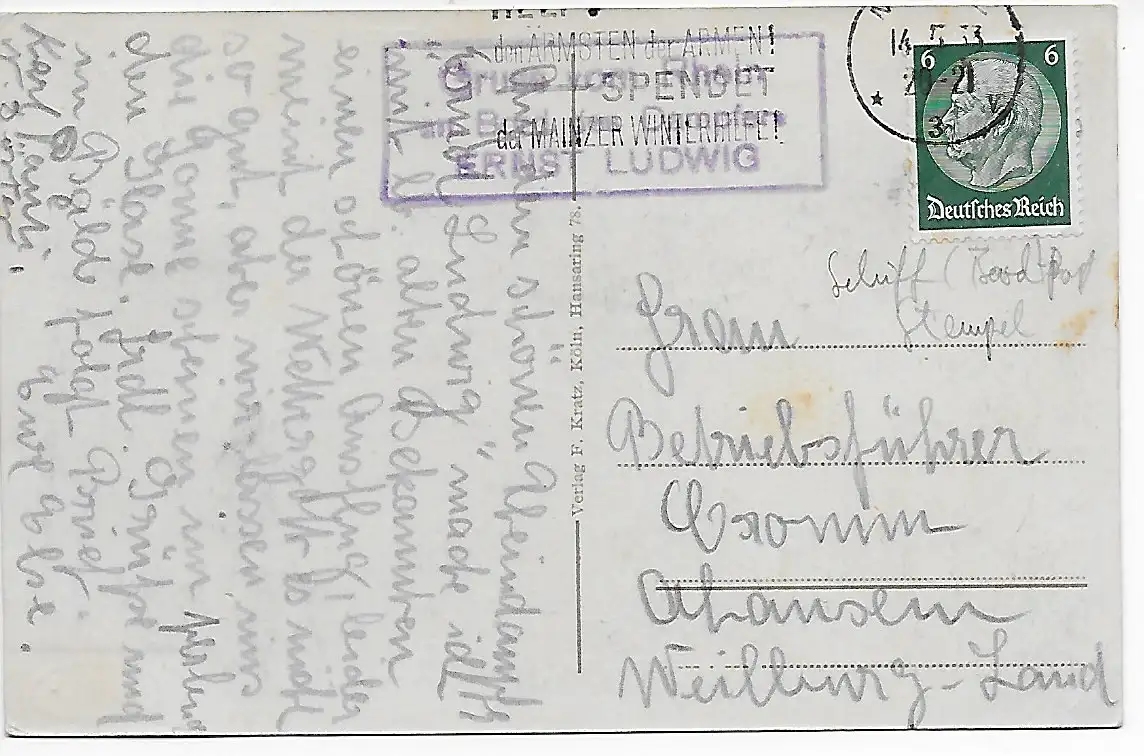 HELFT
den ÄRMSTEN der ARMEN!
SPENDET
der MAINZER WINTERHILFE!
Gruss vom Rhein
an Bord des Dampfer
ERNST LUDWIG
14.5.33
20-21
6 6
Deutsches Reich
Schiff (Bord Post
Stempel
Frau
Betriebsführer
Cromm
Ahausen
Weilburg-Land
Verlag F. Kratz, Köln, Hansaring 78.
schönen Rheindampfer
"Ernst Ludwig" mache ich
mit alten Bekannten
einen schönen Ausflug, leider
meint der Wettergott es nicht
so gut, aber wir lassen uns
die Sonne scheinen im
den Glase. Frdl. Grüße und
im Bälde folgt Brief.